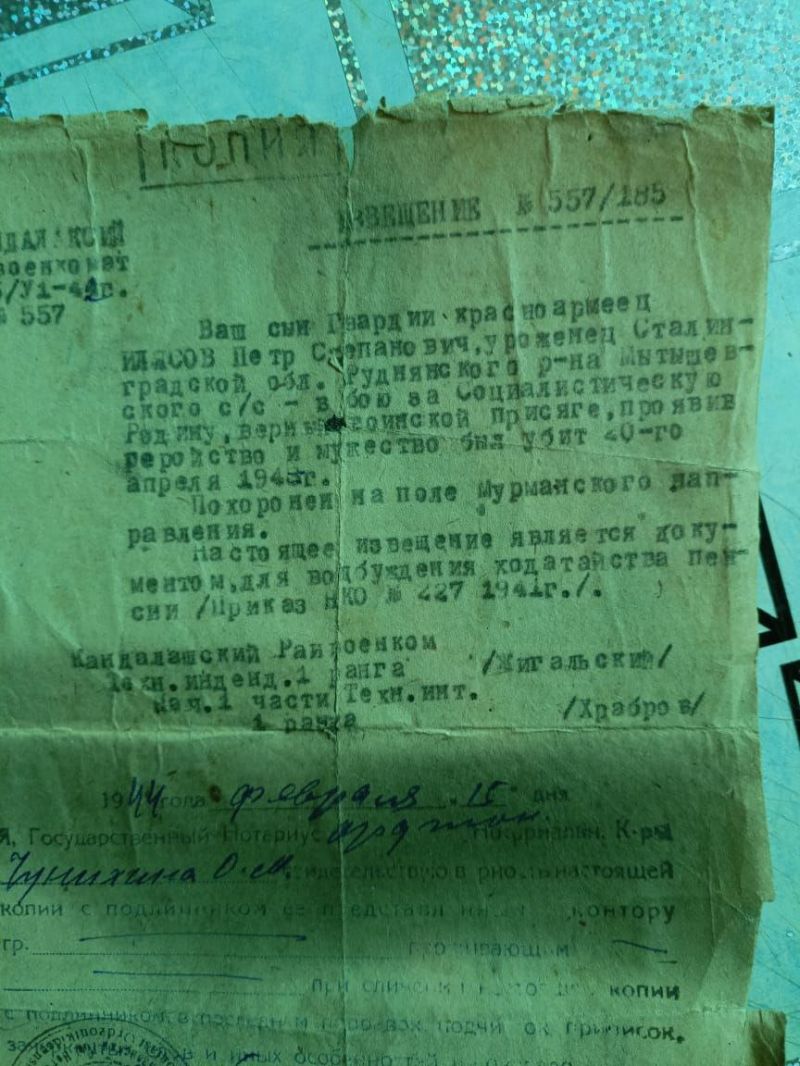 КОПИЯ
ИЗВЕЩЕНИЕ № 557/185
ДАЛАКСИЙ
военкомат
/У1-42г.
№ 557
Ваш сын Гвардии красноармеец
ИЛЯСОВ Петр Степанович, уроженец Сталин-
градской обл. Руднянского р-на Мытышев-
ского с/с - в бою за Социалистическую
Родину, верный воинской Присяге, проявив
геройство и мужество был убит 20-го
апреля 194 г.
Похоронен на поле Мурманского нап-
равления.
Настоящее извещение является доку-
ментом, для возбуждения ходатайства пен-
сии /Приказ НКО № 227 1941г./.
Кандалашский Райвоенком
Техн.инденд.1 ранга /Жигальский/
Нач.1 части Техн.инт.
1 ранга /Храбров/
1944 года февраля 15 дня
Я, Государственный Нотариус Нотариальн. К-ры
Чунихина О.М. свидетельствую верность настоящей
копии с подлинником ее контору
гр. проживающим
при сличении копии
с подлинником в последнем подчисток приписок,
и иных особенностей